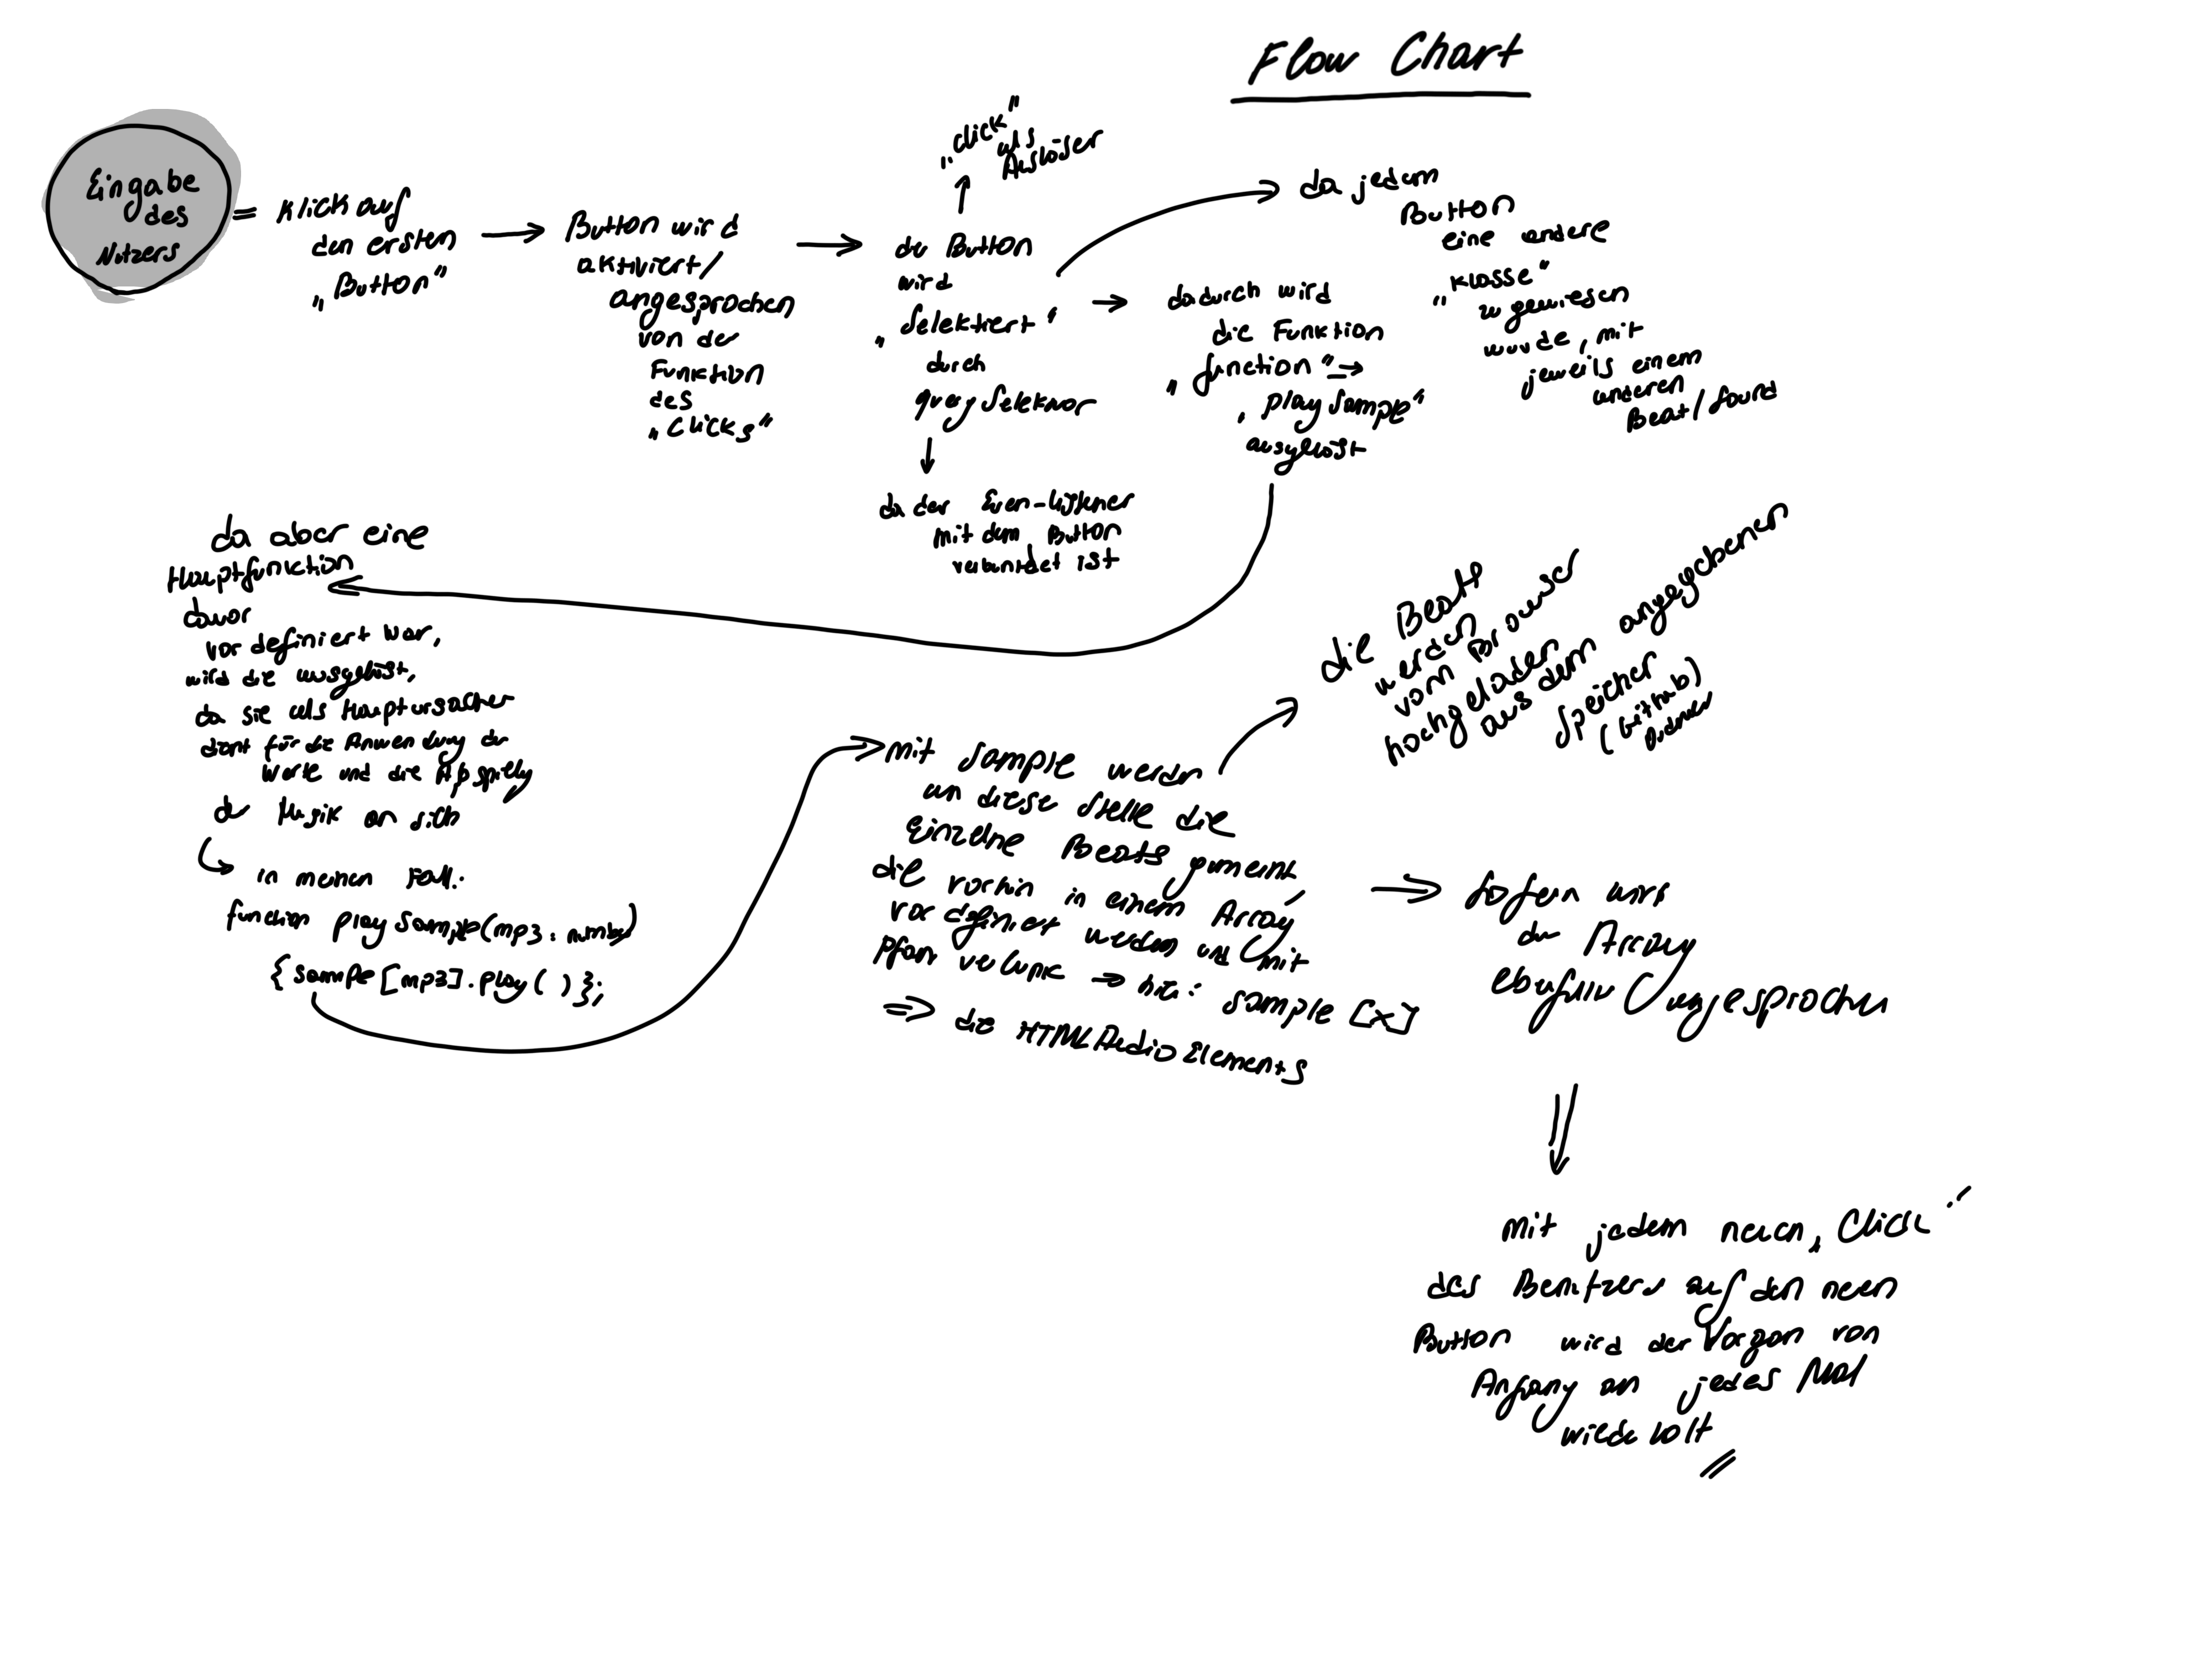 Flow Chart
Eingabe
des
Nutzers
= Klick auf
den ersten
„Button"
Button wird
aktiviert/
angesprochen
von der
Funktion
des
„Clicks"
„click"
als
Auslöser
der Button
wird
„Selektiert"
durch
query Selektor
da der Even-listener
mit dem Button
verbundet ist
da jedem
Button
eine andere
„Klasse"
zugewiesen
wurde, mit
jeweils einem
anderen
Beat/Sound
dadurch wird
die Funktion
„function" →
„playSample"
ausgelöst
da aber eine
Hauptfunktion
davor
vor definiert war,
wird die ausgelöst,
da sie als Hauptursacher
dient für die Anwendung der
Werte und die
der Musik an sich
in meinen Fall:
function playSample(mp3: number)
{ sample[mp3].play( ) };
mit Sample werden
an diese Stelle die
Einzelne Beats gemeint
die vorhin in einem Array
vor definiert werden und mit
→ hier: sample [x]
⇒ die HTMLAudioElements
die Beats
werden
vom Browser
hochgeladen
aus dem angegebenen
Speicher
(Github)
Sofern wird
der Array
ebenfalls angesprochen
mit jedem neuen „Click"
des Benutzers auf den neuen
Button wird der Vorgan von
Anfang an jedes Mal
wiederholt